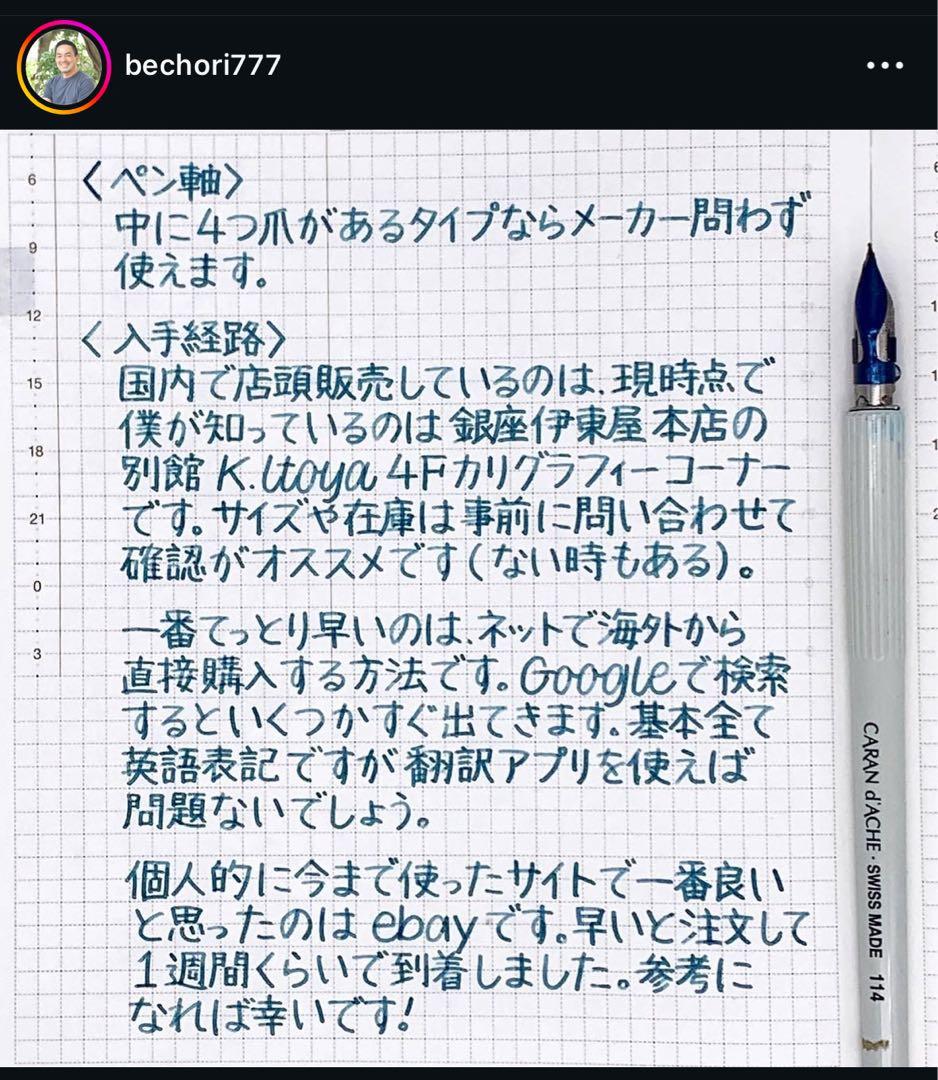 bechori777
〈ペン軸〉
中に4つ爪があるタイプならメーカー問わず
使えます。
〈入手経路〉
国内で店頭販売しているのは、現時点で
僕が知っているのは銀座伊東屋本店の
別館 K.Itoya 4Fカリグラフィーコーナー
です。サイズや在庫は事前に問い合わせて
確認がオススメです(ない時もある)。
一番てっとり早いのは、ネットで海外から
直接購入する方法です。Googleで検索
するといくつかすぐ出てきます。基本全て
英語表記ですが翻訳アプリを使えば
問題ないでしょう。
個人的に今まで使ったサイトで一番良い
と思ったのはebayです。早いと注文して
1週間くらいで到着しました。参考に
なれば幸いです!
6
9
12
15
18
21
0
3
CARAN d'ACHE · SWISS MADE 114